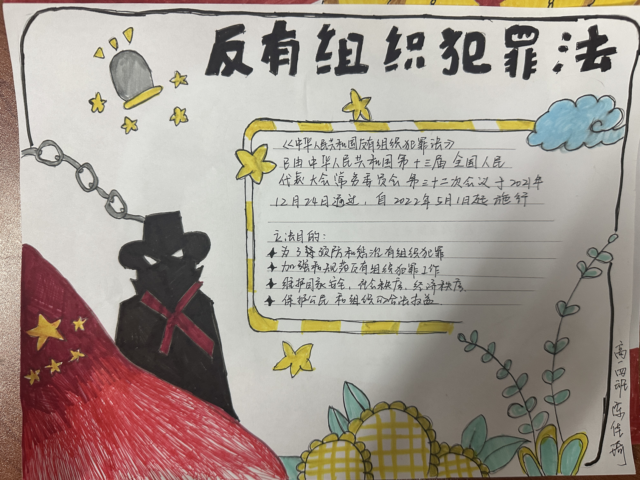 反有组织犯罪法
《中华人民共和国反有组织犯罪法》
已由中华人民共和国第十三届全国人民
代表大会常务委员会第三十二次会议于2021年
12月24日通过，自2022年5月1日起施行
立法目的：
为了预防和惩治有组织犯罪
加强和规范反有组织犯罪工作
维护国家安全、社会秩序、经济秩序
保护公民和组织的合法权益
高一四班陈佳琦